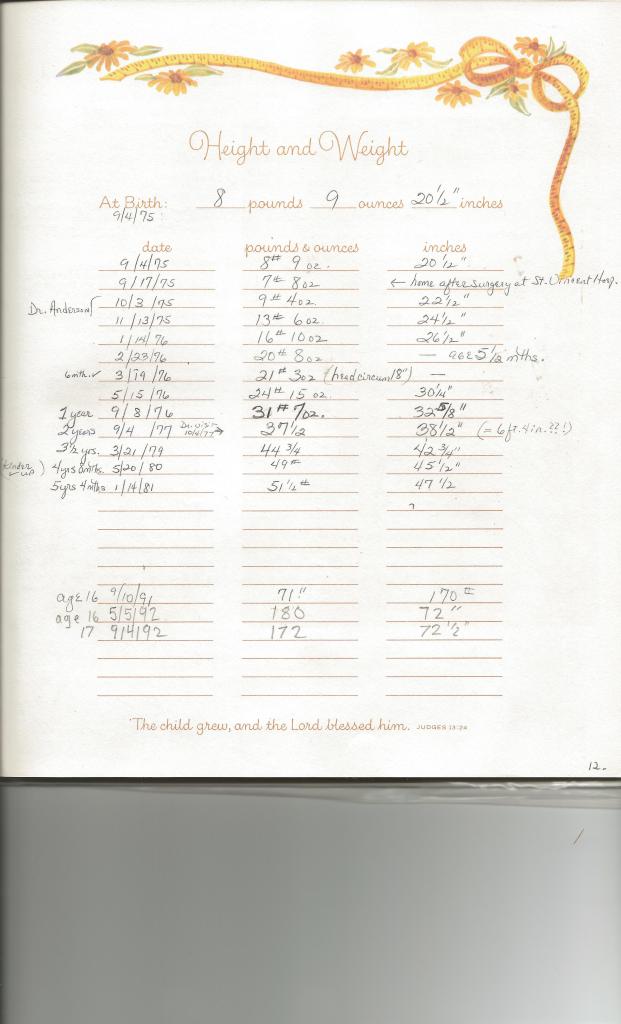 Height and Weight
At Birth: 8 pounds 9 ounces 20 1/2" inches
9/4/75
date pounds & ounces inches
9/4/75 8# 9 oz. 20 1/2"
9/17/75 7# 8 oz ← home after surgery at St. Vincent Hosp.
Dr. Anderson 10/3/75 9# 4 oz. 22 1/2"
11/13/75 13# 6 oz. 24 1/2"
1/14/76 16# 10 oz 26 1/2"
2/23/76 20# 8 oz — age 5 1/2 mths.
6 mth. ✓ 3/19/76 21# 3 oz (head circum 18") —
5/15/76 24# 15 oz. 30 1/4"
1 year 9/8/76 31# 7 oz. 32 5/8"
2 years 9/4/77 Dr. visit 10/4/77 → 37 1/2 38 1/2" (= 6 ft. 4 in.??!)
3 1/2 yrs. 3/21/79 44 3/4 42 3/4"
4 yrs 8 mths. 5/20/80 49# 45 1/2"
5 yrs 4 mths 1/14/81 51 1/2# 47 1/2
age 16 9/10/91 71" 170#
age 16 5/5/92 180 72"
17 9/4/92 172 72 1/2"
"The child grew, and the Lord blessed him. JUDGES 13:24
12.